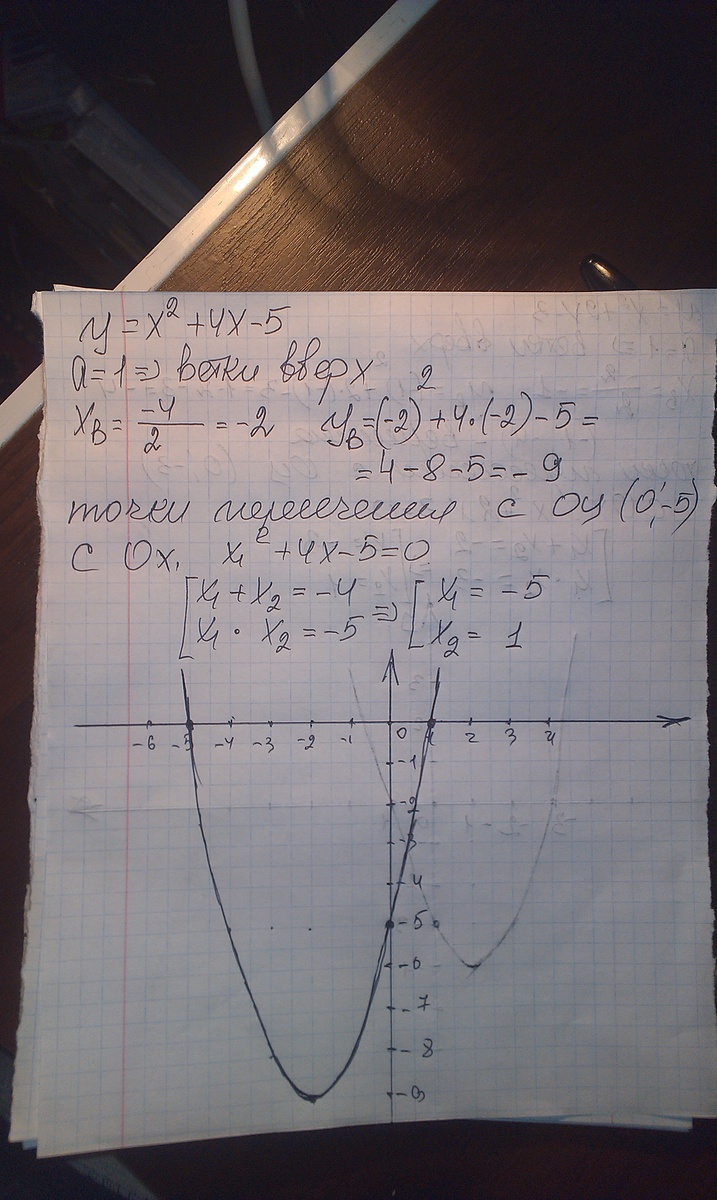 y = x² + 4x - 5
a = 1 => ветки вверх
x_B = -4/2 = -2 y_B = (-2)² + 4·(-2) - 5 =
= 4 - 8 - 5 = - 9
точки пересечения с Oy (0;-5)
с Ox, x₁² + 4x - 5 = 0
[ x₁ + x₂ = -4 => [ x₁ = -5
[ x₁ · x₂ = -5 [ x₂ = 1
-6 -5 -4 -3 -2 -1 0 1 2 3 4
-1
-2
-3
-4
-5
-6
-7
-8
-9